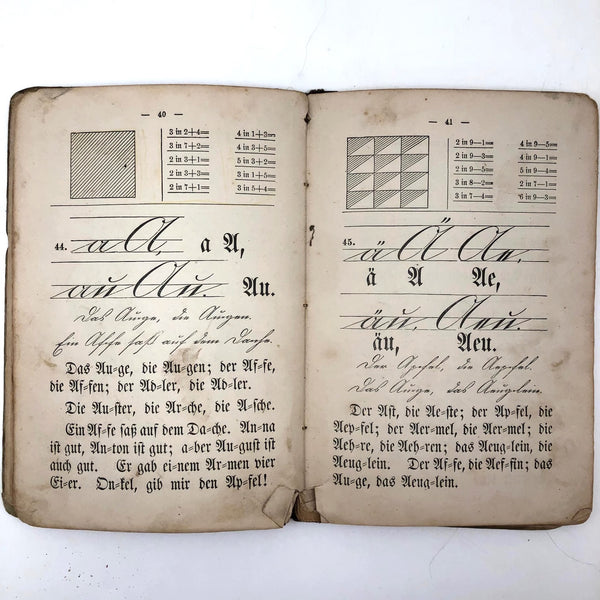 — 40 —
3 in 2+4= 4 in 1+3=
3 in 7+2= 4 in 3+5=
2 in 3+2= 5 in 3+2=
2 in 3+3= 3 in 1+5=
2 in 7+1= 3 in 5+4=
44. a A, a A,
au Au. Au.
Das Auge, die Augen.
Ein Affe saß auf dem Dache.
Das Au=ge, die Au=gen; der Af=fe,
die Af=fen; der Ad=ler, die Ad=ler.
Die Au=ster, die Ar=che, die A=sche.
Ein Af=fe saß auf dem Da=che. An=na
ist gut, An=ton ist gut; a=ber Au=gust ist
auch gut. Er gab ei=nem Ar=men vier
Ei=er. On=kel, gib mir den Ap=fel!
— 41 —
2 in 9—1= 4 in 9—5=
2 in 9—3= 4 in 9—1=
2 in 9—5= 5 in 9—4=
3 in 8—2= 2 in 7—1=
3 in 7—4= 6 in 9—3=
45. ä Ä Ae.
ä A Ae,
äu. Aeu.
äu, Aeu.
Der Apfel, die Aepfel.
Das Auge, das Aeuglein.
Der Ast, die Ae=ste; der Ap=fel, die
Aep=fel; der Aer=mel, die Aer=mel; die
Aeh=re, die Aeh=ren; das Aeug=lein, die
Aeug=lein. Der Af=fe, die Aef=fin; das
Au=ge, das Aeug=lein.